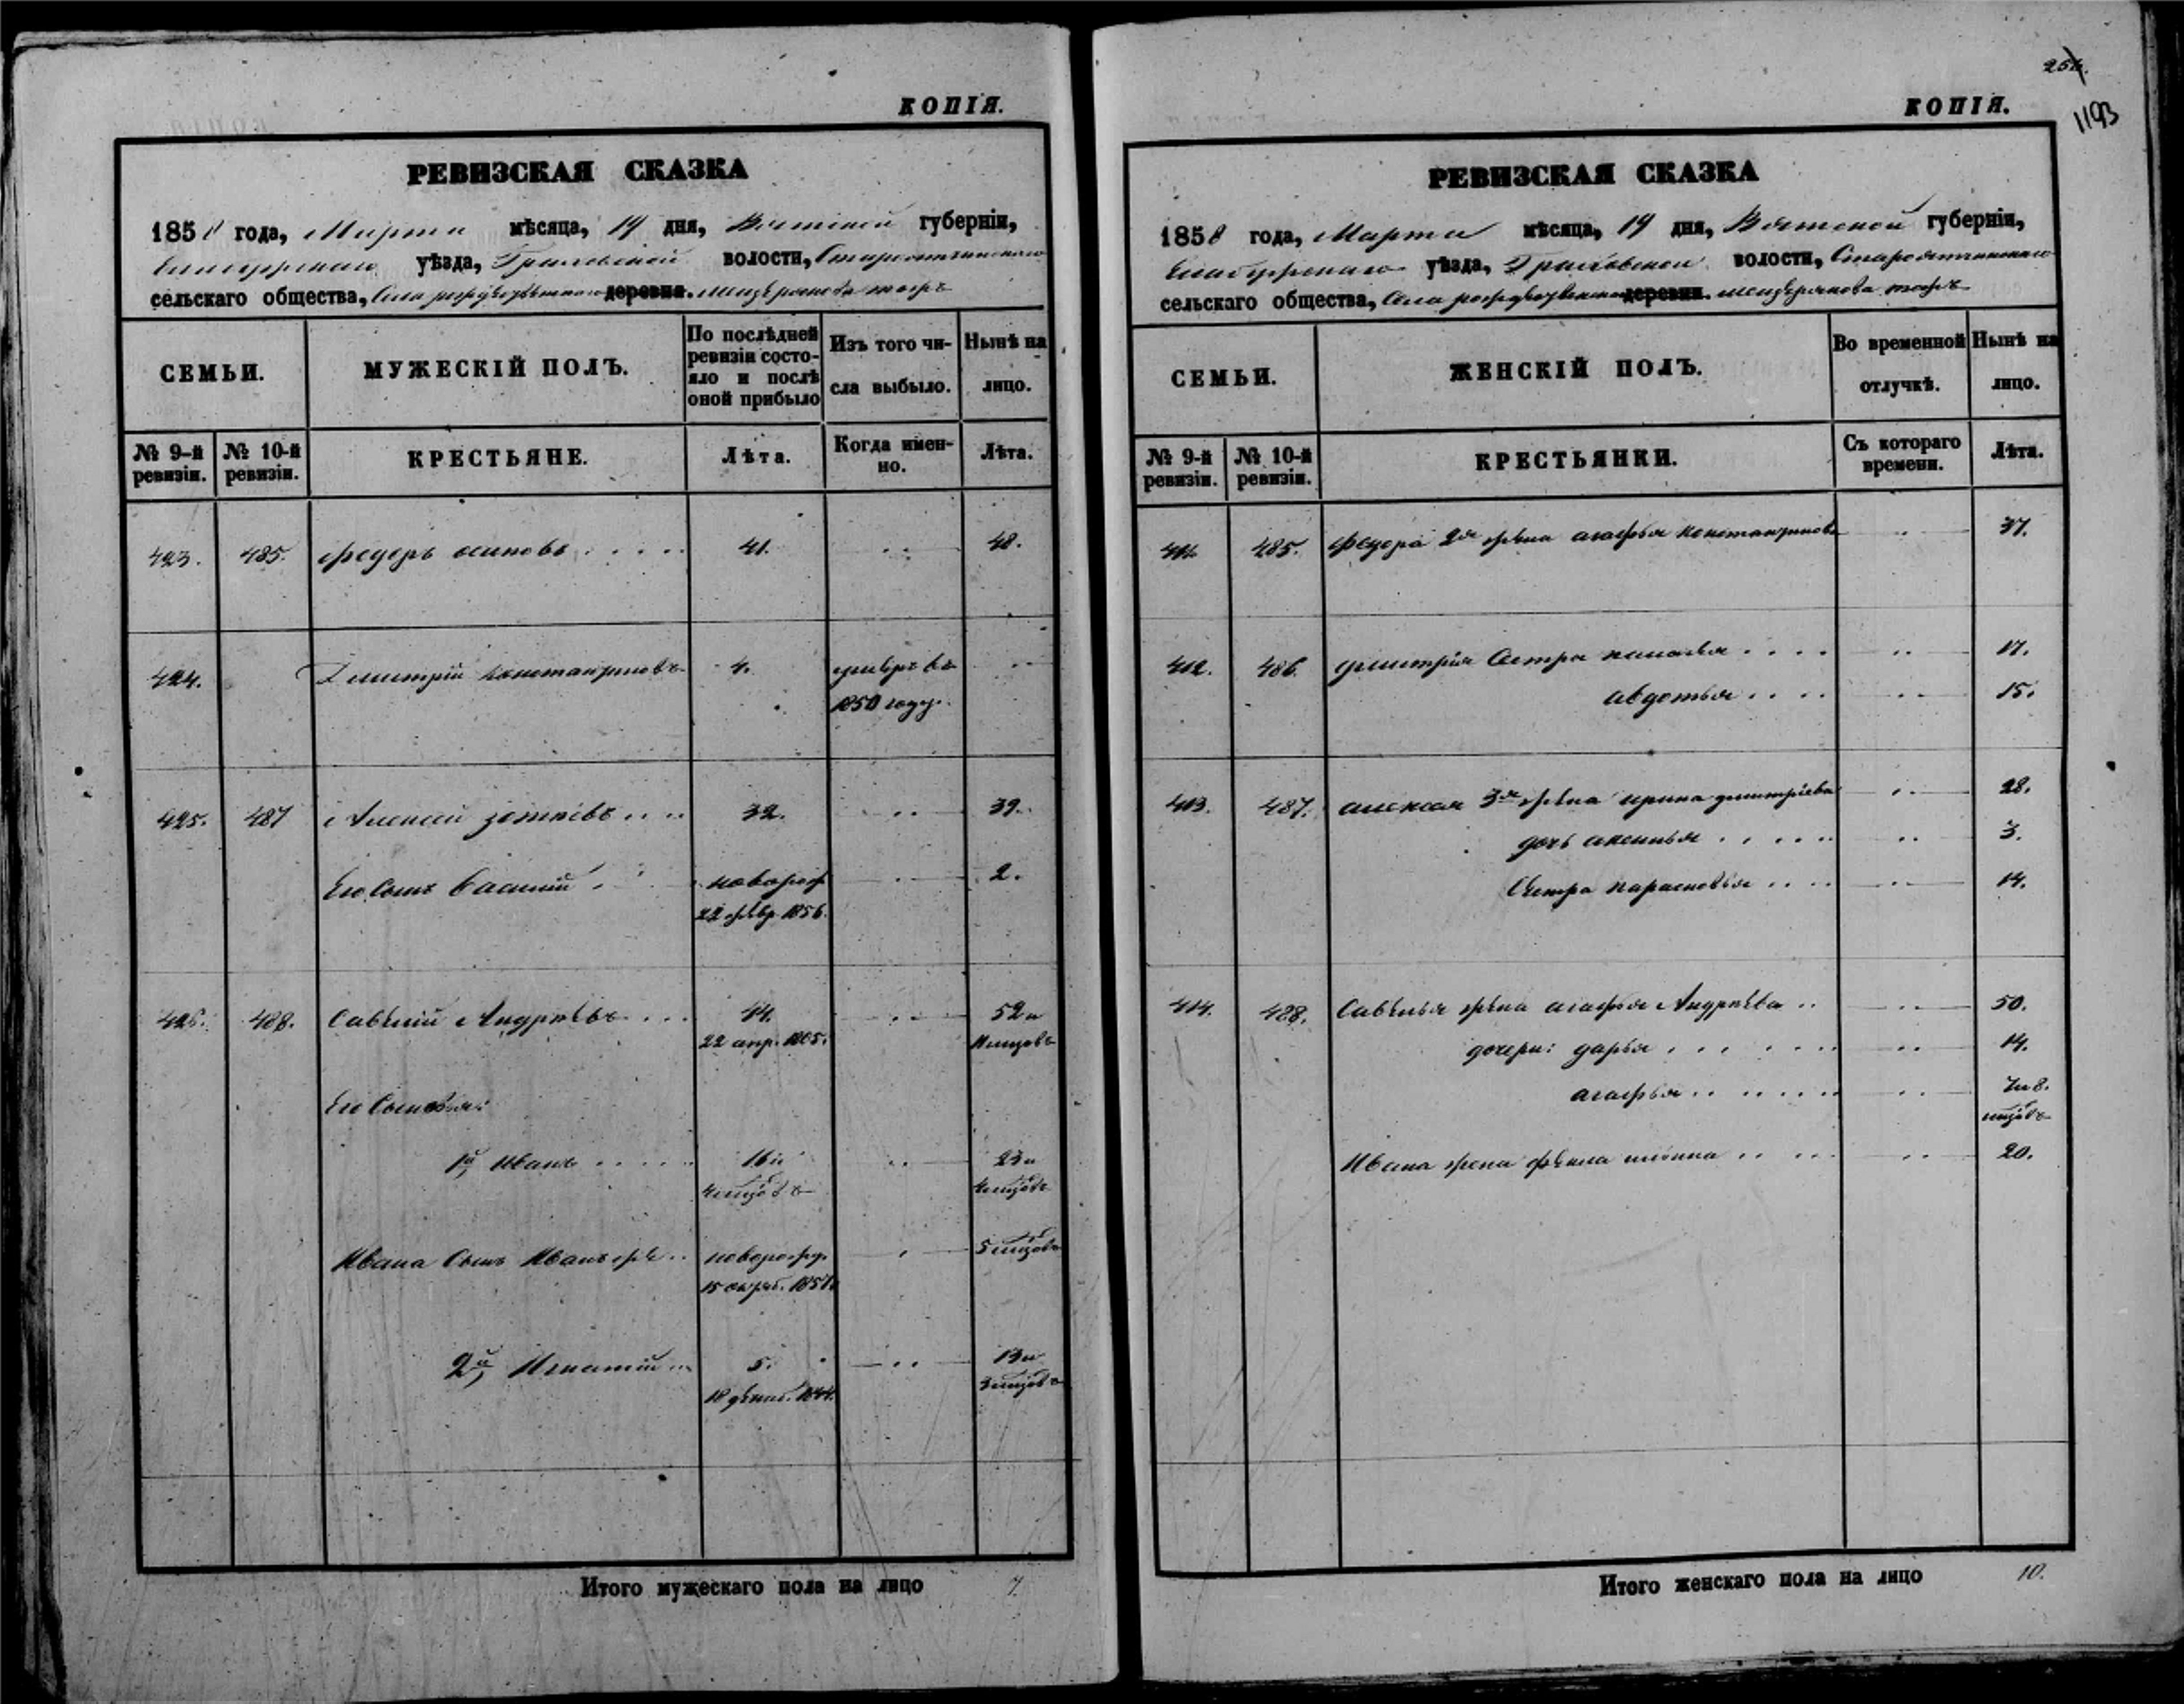 КОПІЯ.
РЕВИЗСКАЯ СКАЗКА
1858 года, Марта мѣсяца, 19 дня, Вятской губерніи,
Елабужскаго уѣзда, Граховской волости, Староятчинскаго
сельскаго общества, Села рождественскаго деревни.
СЕМЬИ.
МУЖЕСКІЙ ПОЛЪ.
По послѣдней ревизіи состо-
яло и послѣ
оной прибыло
Изъ того чи-
сла выбыло.
Нынѣ на
лицо.
№ 9-й
ревизіи.
№ 10-й
ревизіи.
КРЕСТЬЯНЕ.
Лѣта.
Когда имен-
но.
Лѣта.
423. 485. федоръ осиповъ 41. 48.
424. Дмитрій константиновъ 4. умеръ въ
1850 году.
425. 487 Алексей зотѣевъ 32. 39.
Его Сынъ Василій новорож 2.
22 февр. 1856.
426. 488. Савелій Андрѣевъ 44. 52 и
22 апр. 1805. 11 мцовъ
Его Сыновья:
1й Иванъ 16 и 23 и
4 мцовъ 4 мцовъ
Ивана Сынъ Иванъ же новорожд. 5 мцовъ
15 октяб. 1857.
2й Игнатій 5. 13 и
18 декаб. 1844. 3 мцовъ
Итого мужескаго пола на лицо 7.
254.
1193
КОПІЯ.
РЕВИЗСКАЯ СКАЗКА
1858 года, Марта мѣсяца, 19 дня, Вятской губерніи,
Елабужскаго уѣзда, Граховской волости, Староятчинскаго
сельскаго общества, Села рождественскаго деревни.
СЕМЬИ.
ЖЕНСКІЙ ПОЛЪ.
Во временной
отлучкѣ.
Нынѣ на
лицо.
№ 9-й
ревизіи.
№ 10-й
ревизіи.
КРЕСТЬЯНКИ.
Съ котораго
времени.
Лѣта.
411. 485. Федора 2я жена агафья константинова 37.
412. 486. дмитрія Сестра 17.
авдотья 15.
413. 487. алексея 3я жена ирина дмитріева 28.
дочь аксинья 3.
Сестра парасковья 14.
414. 488. Савелья жена агафья Андрѣева 50.
дочери: дарья 14.
агафья 7 и 8.
мцовъ
Ивана жена фекла 20.
Итого женскаго пола на лицо 10.